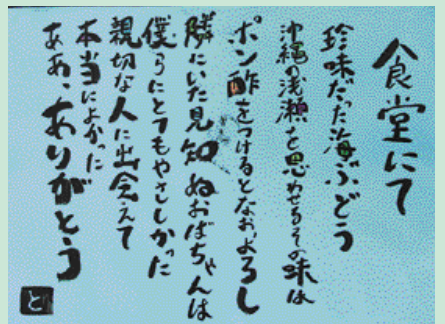 食堂にて
珍味だった海ぶどう
沖縄の浅瀬を思わせるその味は
ポン酢をつけるとなおよろし
隣にいた見知ぬおばちゃんは
僕らにとてもやさしかった
親切な人に出会えて
本当によかった
ああ、ありがとう
と